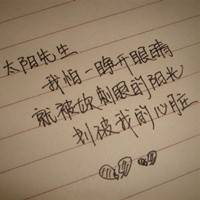 太阳先生
我怕一睁开眼睛
就被你刺眼的阳光
划破我的心脏